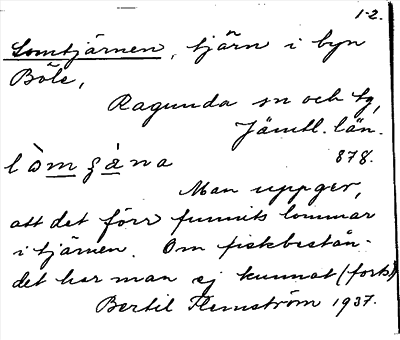 1-2.
Lomtjärnen, tjärn i byn
Böle,
Ragunda sn och tg,
Jämtl. län.
878.
Man uppger,
att det förr funnits lommar
i tjärnen. Om fiskbestån-
det har man ej kunnat (forts.)
Bertil Flemström 1937.